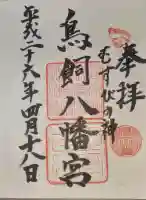 奉拝
むすびの神
鳥飼八幡宮
平成二十六年四月十八日